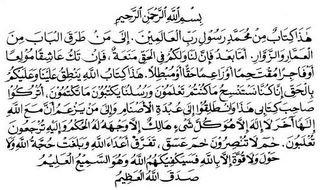 بِسْمِ اللَّهِ الرَّحْمَنِ الرَّحِيمِ
هَذَا كِتَابٌ مِنْ مُحَمَّدٍ رَسُولِ رَبِّ الْعَالَمِينَ. إِلَى مَنْ طَرَقَ الْبَابَ مِنَ
الْعُمَّارِ وَالزُّوَّارِ. أَمَّا بَعْدُ فَإِنَّ لَنَا وَلَكُمْ فِي الْحَقِّ مَنَعَةً، فَإِنْ تَكُ عَاشِقًا مُولَعًا
أَوْ فَاجِرًا مُقْتَحِمًا أَوْ زَاعِمًا حَقًّا أَوْ مُبْطِلًا. هَذَا كِتَابُ اللَّهِ يَنْطِقُ عَلَيْنَا وَعَلَيْكُمْ
بِالْحَقِّ إِنَّا كُنَّا نَسْتَنْسِخُ مَا كُنْتُمْ تَعْمَلُونَ وَرُسُلُنَا يَكْتُبُونَ مَا تَكْتُمُونَ. اُتْرُكُوا
صَاحِبَ كِتَابِي هَذَا وَانْطَلِقُوا إِلَى عَبَدَةِ الْأَصْنَامِ وَإِلَى مَنْ يَزْعُمُ أَنَّ مَعَ اللَّهِ
إِلَهًا آخَرَ لَا إِلَهَ إِلَّا هُوَ كُلُّ شَيْءٍ هَالِكٌ إِلَّا وَجْهَهُ لَهُ الْحُكْمُ وَإِلَيْهِ تُرْجَعُونَ
تُغْلَبُونَ. حم لَا تُنْصَرُونَ حم عسق، تَفَرَّقَ أَعْدَاءُ اللَّهِ وَبَلَغَتْ حُجَّةُ اللَّهِ وَلَا
حَوْلَ وَلَا قُوَّةَ إِلَّا بِاللَّهِ فَسَيَكْفِيكَهُمُ اللَّهُ وَهُوَ السَّمِيعُ الْعَلِيمُ
صَدَقَ اللَّهُ الْعَظِيمُ